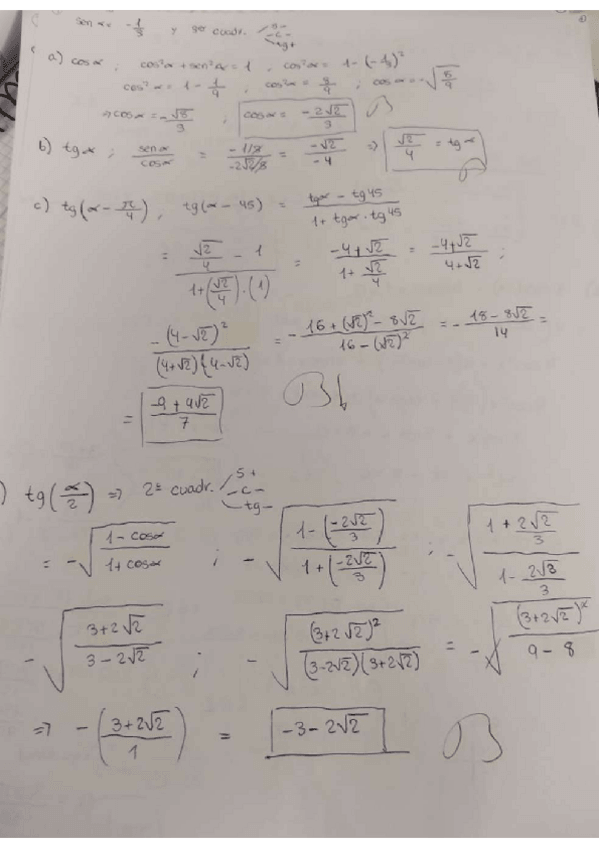 sen α = -1/3 y 3er cuadr. s - c - tg +
a) cos α ; cos²α + sen²α = 1 , cos²α = 1 - (-1/3)²
cos²α = 1 - 1/9 , cos²α = 8/9 ; cos α = -√(8/9)
⇒ cos α = -√8/3 ; cos α = -2√2/3 B
b) tg α ; sen α/cos α = (-1/3)/(-2√2/3) = -√2/-4 ⇒ √2/4 = tg α
c) tg(α - π/4) , tg(α - 45) = (tg α - tg 45)/(1 + tg α · tg 45)
= (√2/4 - 1)/(1 + (√2/4) · (1)) = (-4 + √2)/(1 + √2/4) = (-4 + √2)/(4 + √2) ;
-(4 - √2)²/((4 + √2)(4 - √2)) = -(16 + (√2)² - 8√2)/(16 - (√2)²) = -(18 - 8√2)/14 =
= (-9 + 4√2)/7 B
) tg(α/2) ⇒ 2º cuadr. s + c - tg -
= -√((1 - cos α)/(1 + cos α)) ; -√((1 - (-2√2/3))/(1 + (-2√2/3))) ; -√((1 + 2√2/3)/(1 - 2√3/3))
-√((3 + 2√2)/(3 - 2√2)) ; -√((3 + 2√2)²/((3 - 2√2)(3 + 2√2))) = -√((3 + 2√2)²/(9 - 8))
⇒ -((3 + 2√2)/1) = -3 - 2√2 B